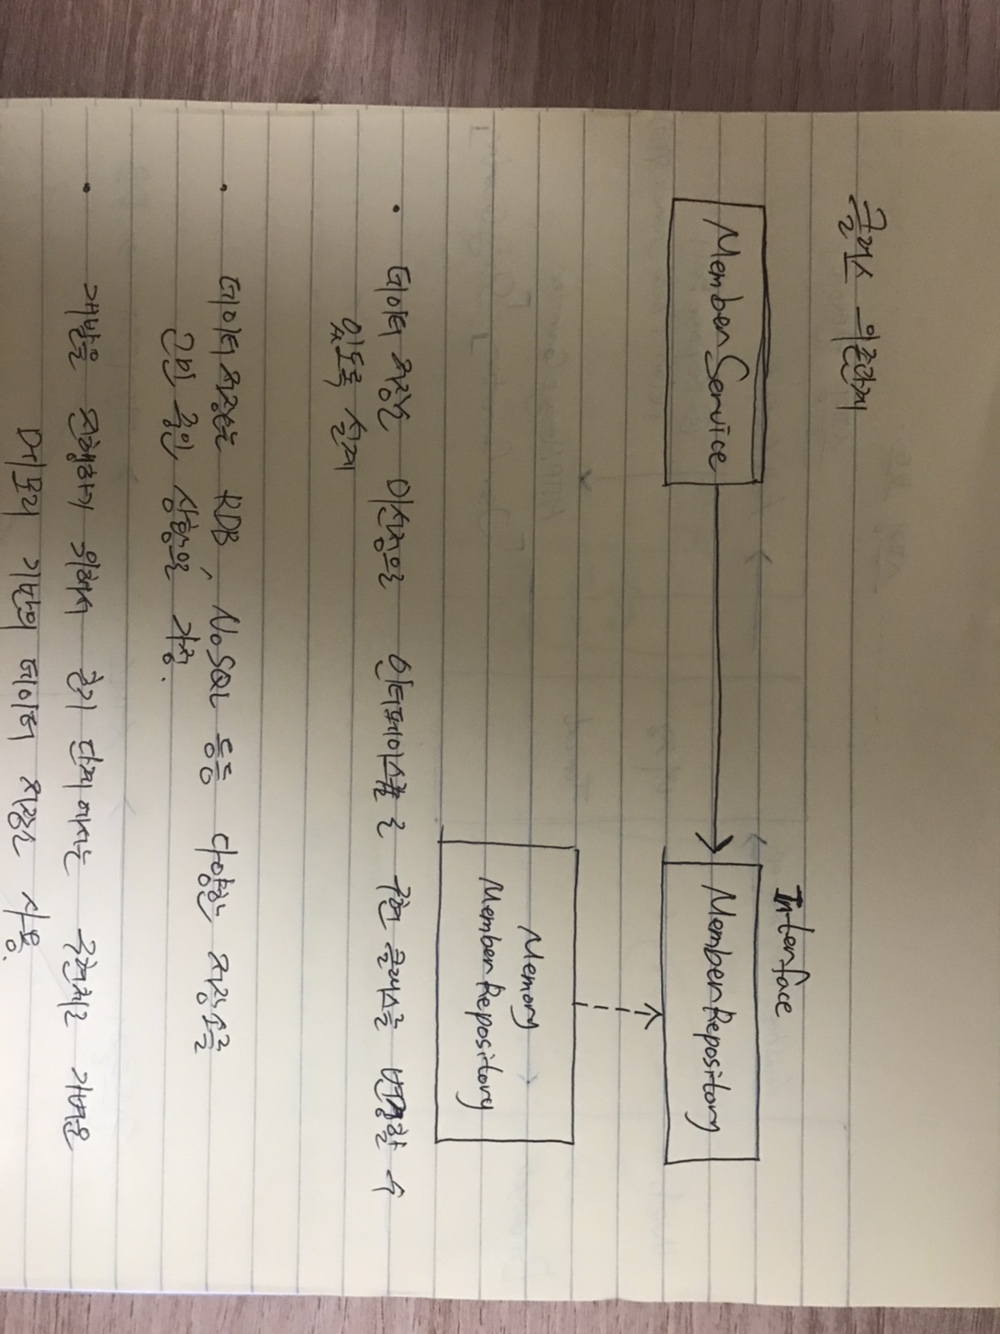 클래스 의존관계
Interface
MemberService
MemberRepository
Memory
MemberRepository
· 데이터 저장소 미선정으로 인터페이스를 구현 클래스를 변경할 수
있도록 설계
· 데이터 저장소는 RDB, NoSQL 등등 다양한 저장소를
고민 중인 상황으로 가정.
· 개발을 진행하기 위해서 초기 단계에서는 구현체로 가벼운
메모리 기반의 데이터 저장소 사용.